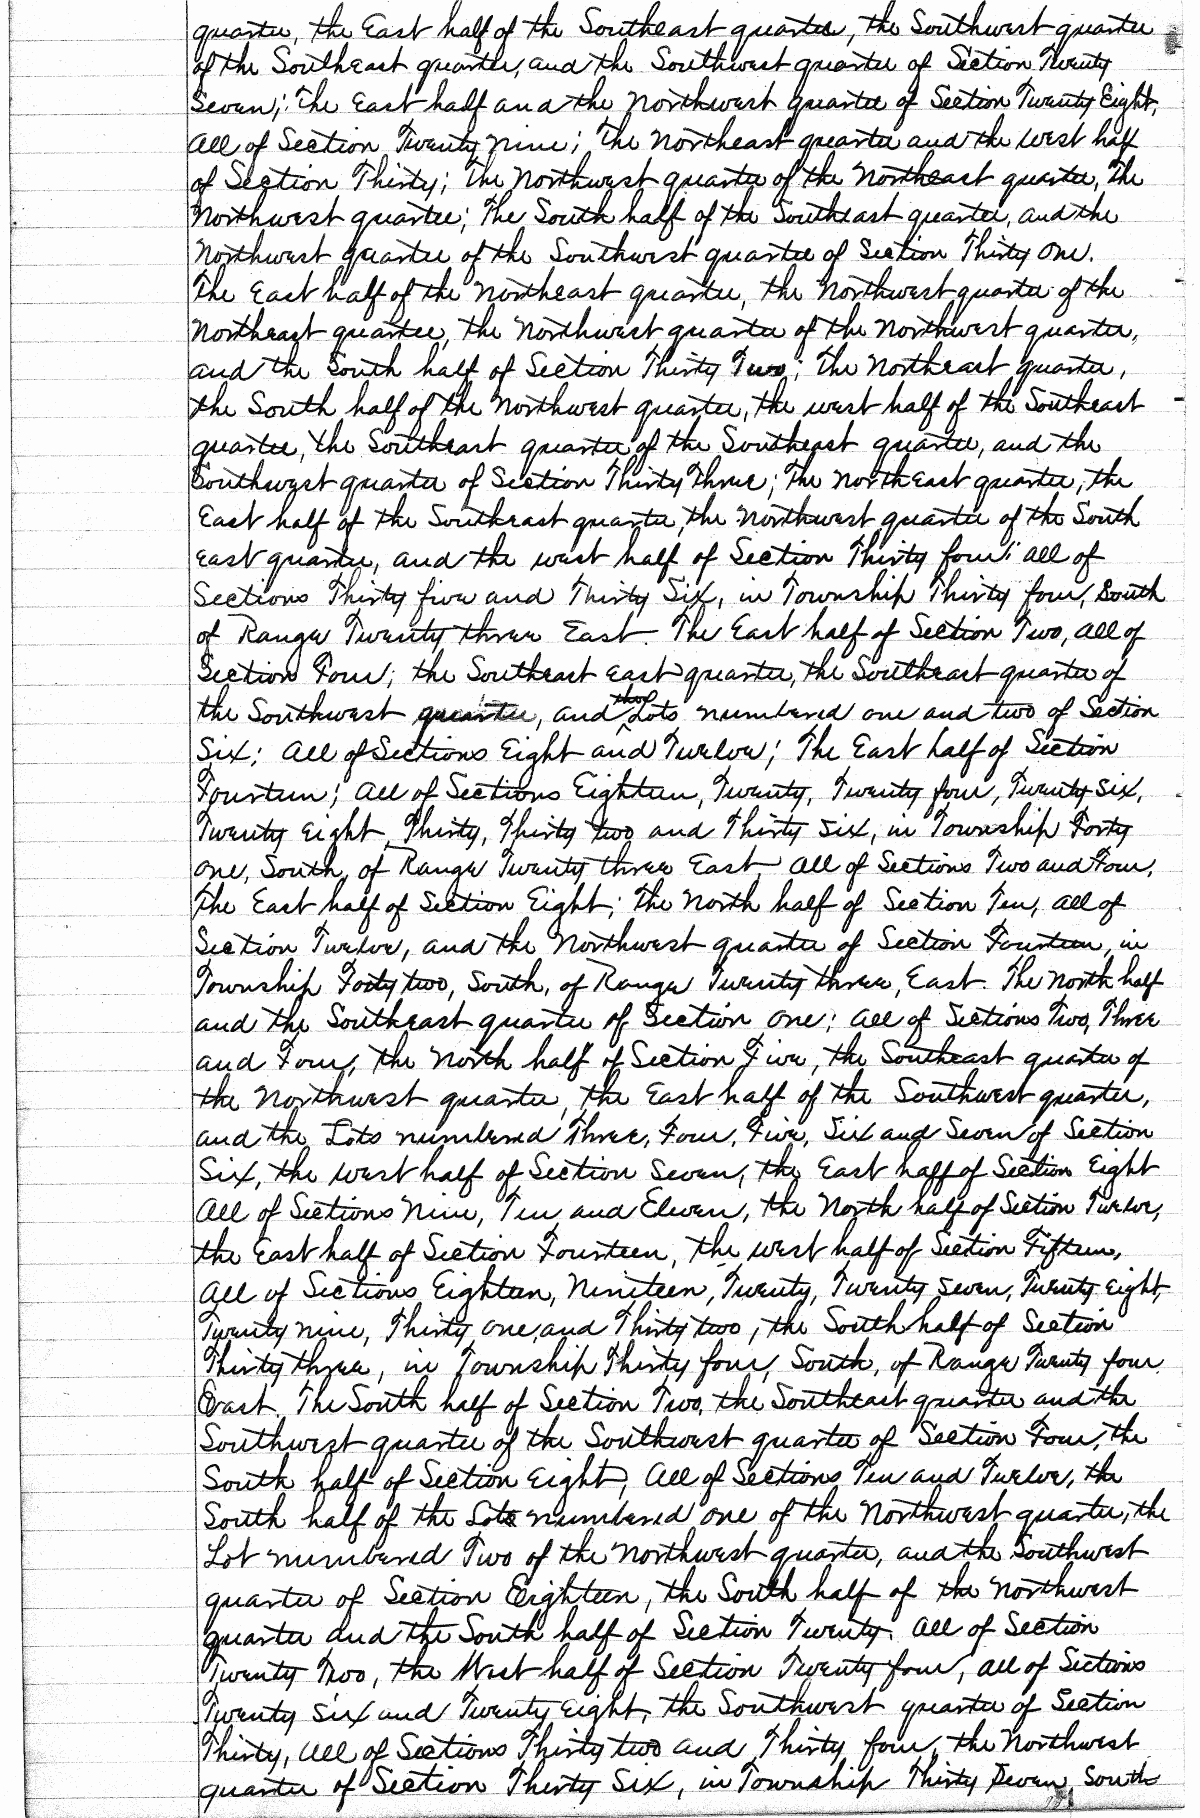 quarter, the East half of the Southeast quarter, the Southwest quarter
of the Southeast quarter, and the Southwest quarter of Section Twenty
Seven; The East half and the Northwest quarter of Section Twenty Eight,
All of Section Twenty nine; The Northeast quarter and the west half
of Section Thirty; The Northwest quarter of the Northeast quarter, The
Northwest quarter; The South half of the Southeast quarter, and the
Northwest quarter of the Southwest quarter of Section Thirty One.
The East half of the Northeast quarter, the Northwest quarter of the
Northeast quarter, the Northwest quarter of the Northwest quarter,
and the South half of Section Thirty Two; The Northeast quarter,
the South half of the Northwest quarter, the west half of the Southeast
quarter, the Southeast quarter of the Southeast quarter, and the
Southwest quarter of Section Thirty Three; The North East quarter, the
East half of the Southeast quarter, the Northwest quarter of the South
east quarter, and the west half of Section Thirty four; all of
Sections Thirty five and Thirty Six, in Township Thirty four, South
of Range Twenty three East. The East half of Section Two, all of
Section Four; the Southeast east quarter, the Southeast quarter of
the Southwest quarter, and the Lots numbered one and two of Section
Six; All of Sections Eight and Twelve; The East half of Section
Fourteen; All of Sections Eighteen, Twenty, Twenty four, Twenty Six,
Twenty Eight, Thirty, Thirty two and Thirty Six, in Township Forty
one, South, of Range Twenty three East. All of Sections Two and Four,
The East half of Section Eight; The North half of Section Ten, all of
Section Twelve, and the Northwest quarter of Section Fourteen, in
Township Forty two, South, of Range Twenty three, East. The North half
and the Southeast quarter of Section One; All of Sections Two, Three
and Four, the North half of Section Five, the Southeast quarter of
the Northwest quarter, the East half of the Southwest quarter,
and the Lots numbered Three, Four, Five, Six and Seven of Section
Six, the west half of Section Seven, the East half of Section Eight
All of Sections Nine, Ten and Eleven, the North half of Section Twelve,
the East half of Section Fourteen, the west half of Section Fifteen,
All of Sections Eighteen, Nineteen, Twenty, Twenty seven, Twenty Eight,
Twenty nine, Thirty one and Thirty two, the South half of Section
Thirty three, in Township Thirty four, South, of Range Twenty four
East. The South half of Section Two, the Southeast quarter and the
Southwest quarter of the Southwest quarter of Section Four, the
South half of Section Eight, All of Sections Ten and Twelve, the
South half of the Lots numbered one of the Northwest quarter, the
Lot numbered Two of the Northwest quarter, and the Southwest
quarter of Section Eighteen, the South half of the Northwest
quarter and the South half of Section Twenty. All of Section
Twenty Two, the West half of Section Twenty four, all of Sections
Twenty Six and Twenty Eight, the Southwest quarter of Section
Thirty, all of Sections Thirty two and Thirty four, the Northwest
quarter of Section Thirty Six, in Township Thirty Seven, South